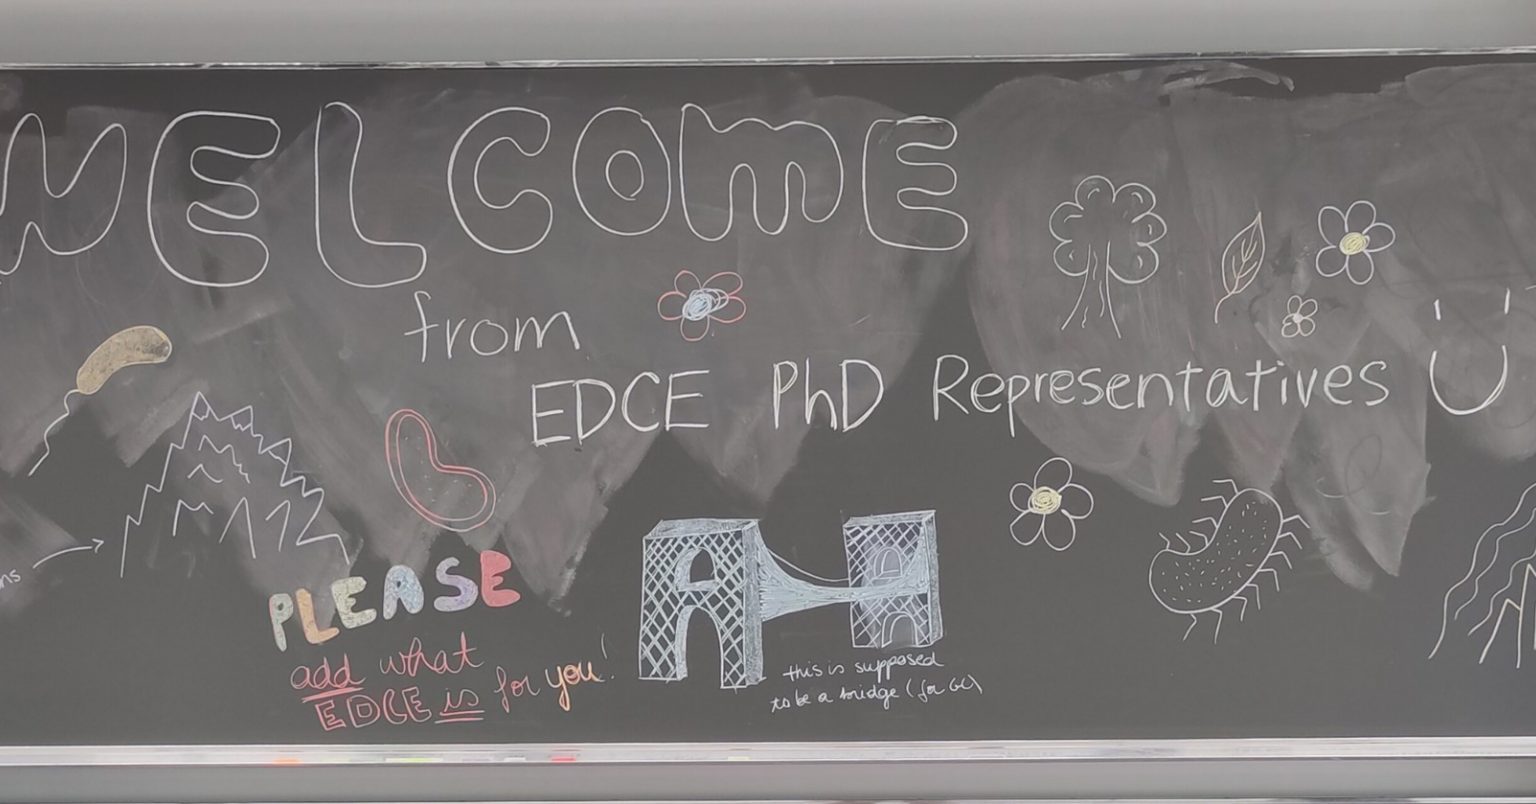 WELCOME
from
EDCE PhD Representatives
PLEASE
add what
EDCE is for you!
this is supposed
to be a bridge (for GC)